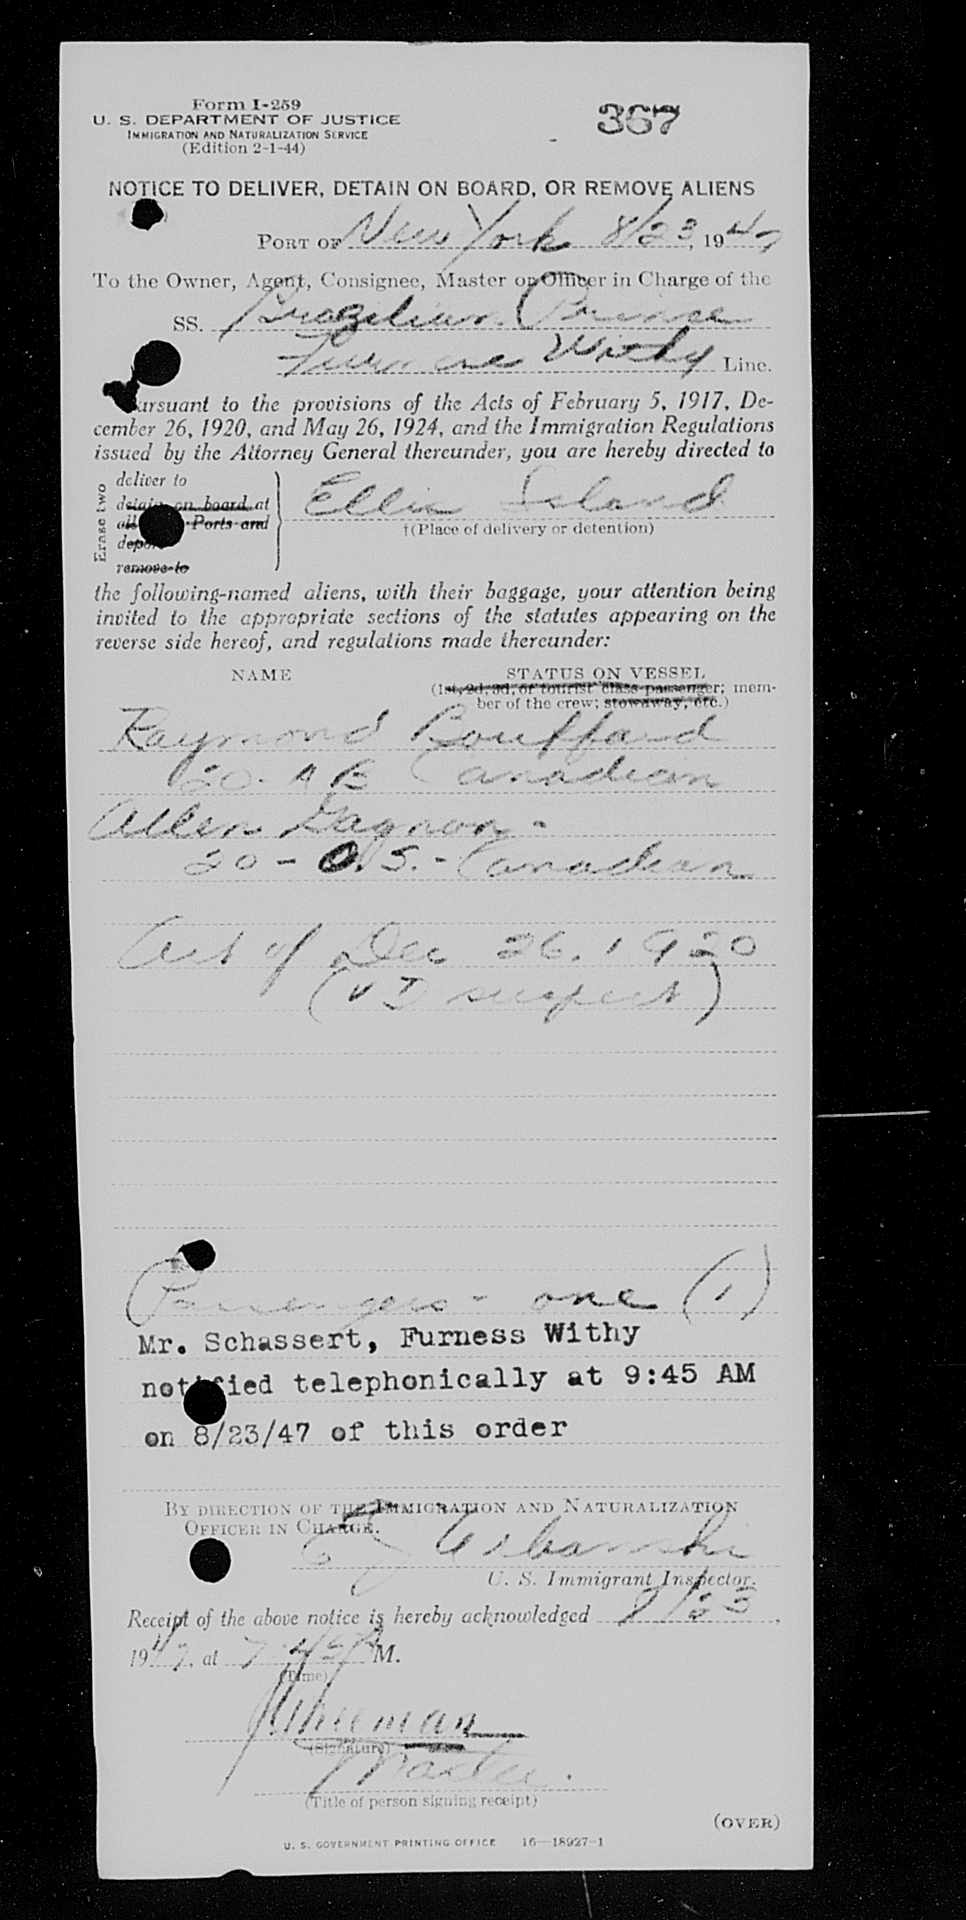 Form I-259
U. S. DEPARTMENT OF JUSTICE
IMMIGRATION AND NATURALIZATION SERVICE
(Edition 2-1-44)
367
NOTICE TO DELIVER, DETAIN ON BOARD, OR REMOVE ALIENS
PORT OF New York 8/23, 1947
To the Owner, Agent, Consignee, Master or Officer in Charge of the
SS. Brazilian Prince
Furness Withy Line.
Pursuant to the provisions of the Acts of February 5, 1917, De-
cember 26, 1920, and May 26, 1924, and the Immigration Regulations
issued by the Attorney General thereunder, you are hereby directed to
Erase two
deliver to
detain on board at
all Ports and
deport
remove to
Ellis Island
†(Place of delivery or detention)
the following-named aliens, with their baggage, your attention being
invited to the appropriate sections of the statutes appearing on the
reverse side hereof, and regulations made thereunder:
NAME
STATUS ON VESSEL
(1st, 2d, 3d, or tourist class passenger; mem-
ber of the crew; stowaway, etc.)
Raymond Bouffard
20 - AB Canadian
Allen Gagnon -
20 - O.S. - Canadian
Act of Dec 26, 1920
(VD suspect)
Passengers - one (1)
Mr. Schassert, Furness Withy
notified telephonically at 9:45 AM
on 8/23/47 of this order
BY DIRECTION OF THE IMMIGRATION AND NATURALIZATION
OFFICER IN CHARGE.
U. S. Immigrant Inspector.
Receipt of the above notice is hereby acknowledged 8/23,
1947, at 7 45 A M.
(Time)
(Signature)
Master.
(Title of person signing receipt)
(OVER)
U. S. GOVERNMENT PRINTING OFFICE 16—18927-1